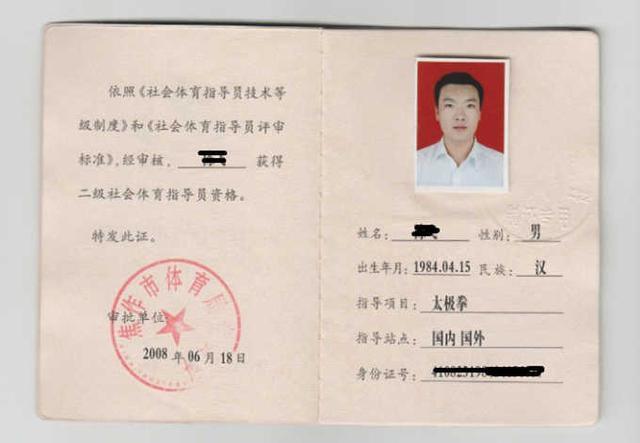 依照《社会体育指导员技术等
级制度》和《社会体育指导员评审
标准》,经审核, 获得
二级社会体育指导员资格。
特发此证。
焦作市体育局
审批单位
2008 年 06 月 18 日
姓名: 性别: 男
出生年月: 1984.04.15 民族: 汉
指导项目: 太极拳
指导站点: 国内 国外
身份证号: